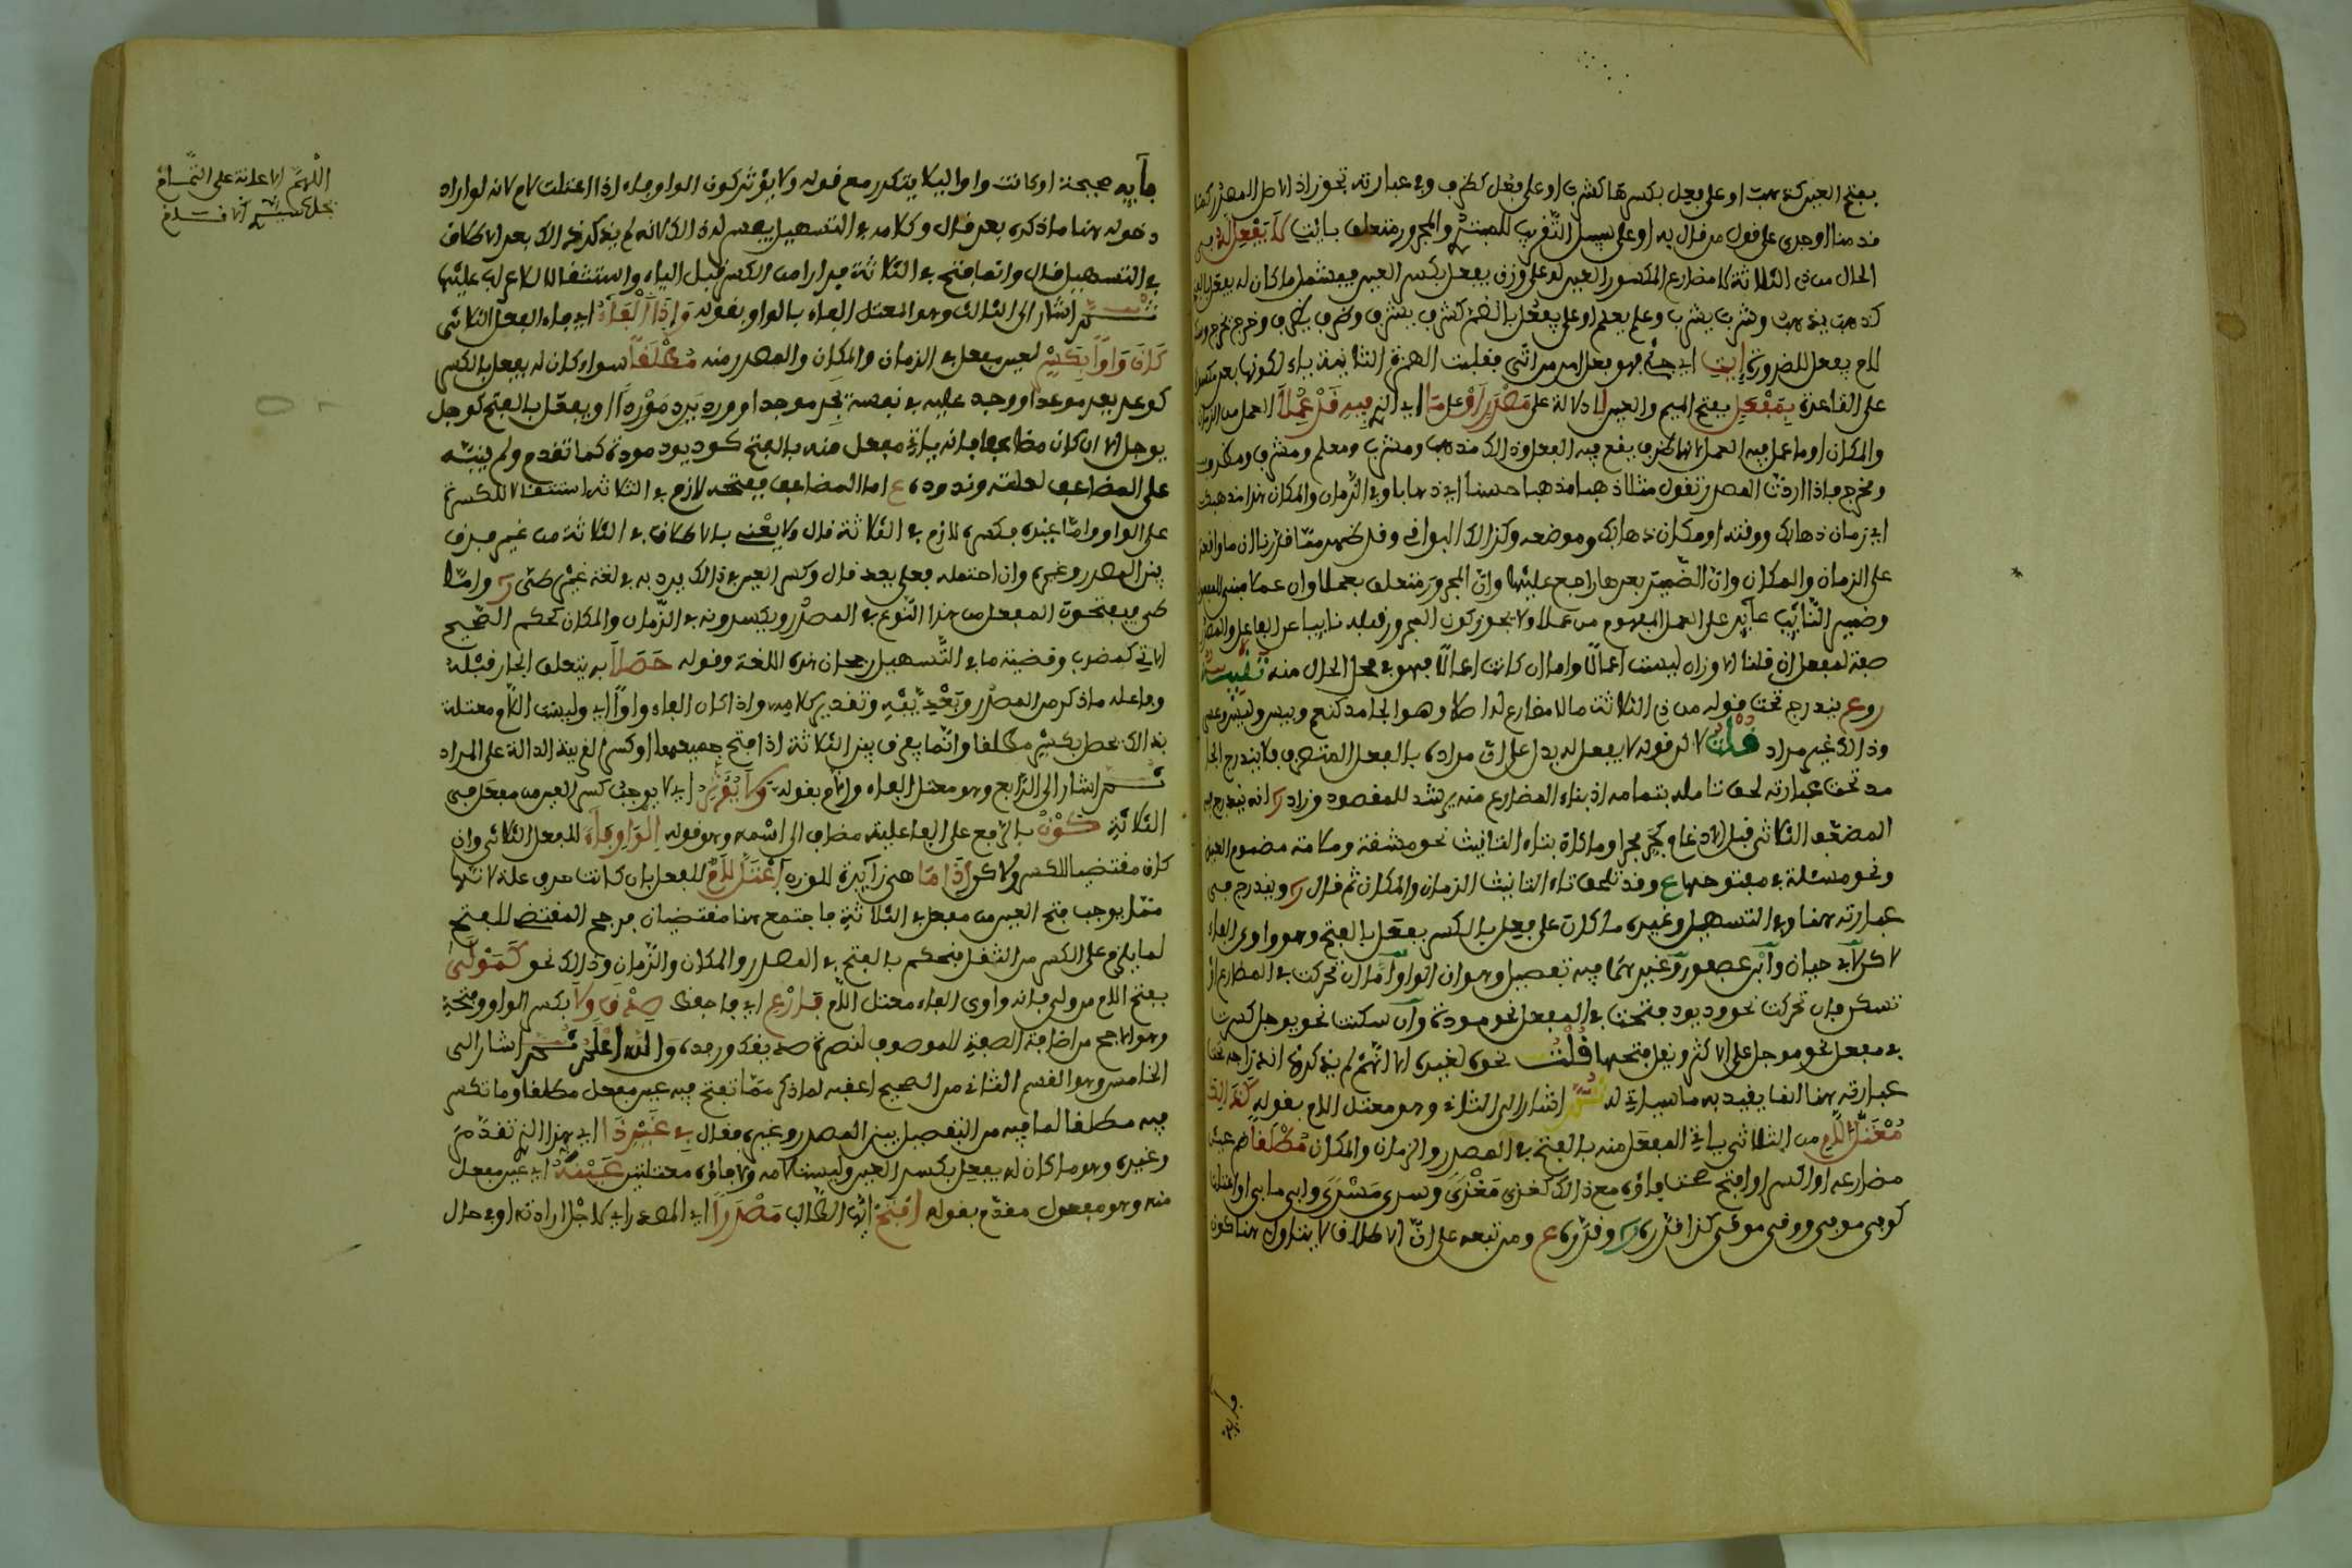 بفتح العين كذهبت او على فعل بكسرها كشرب او على فعل كظرف وفي عبارته تجوز اذ الاصل المصدر كما
قدمنا اوجرى على قول من قال به او على سبيل التقريب للمبتدئ والمجرور متعلق بايت لا يفعل له من
الحال من ذي الثلاثة لا مضارع المكسور العين او على وزن يفعل بكسر العين فيشمل ما كان له يفعل بالفتح
كذهب يذهب وشرب يشرب وعلم يعلم او على يفعل بالضم كشرف يشرف وظرف يظرف وخرج يخرج
لام يفعل للضرورة ايت اي جئ فهو فعل امر من اتى فقلبت الهمزة الثانية ياء لكونها بعد
على القاعدة بمفعل بفتح الميم والعين للدلالة على مصدر او على ما اي الذي فيه قد عملا العمل من الزمان
والمكان او ما عمل فيه العمل لانها ظرف يقع فيه الفعل وذلك مذهب ومشرب ومعلم ومشرف ومظرف
ومخرج فاذا اردت المصدر تقول مثلا ذهب مذهبا حسنا اي ذهابا وفي الزمان والمكان هذا مذهبك
اي زمان ذهابك ووقته او مكان ذهابك وموضعه وكذلك البواقي وقد ظهر مما قررنا ان ما واقعة
على الزمان والمكان وان الضمير بعدها راجع عليها وان المجرور متعلق بعملا وان عملا مبني للمفعول
وضمير النائب عائد على العمل المفهوم من عملا ولا يجوز كون المجرور قبله نائبا عن الفاعل
صفة لمفعل ان قلنا الاوزان ليست اعمالا واما ان كانت اعمالا فهو في محل الحال منه تنبيه
روع يندرج تحت قوله من ذي الثلاثة ما لا مضارع له اصلا وهو الجامد كنعم وبيس وليس وعسى
وذلك غير مراد قلت لاكن قوله لا يفعل له يدل على ان مراده بالفعل المتصرف فلا يندرج الجا
مد تحت عبارته لحق تامله بتمامه اذ بناء المضارع منه يرشد للمقصود وزاد انه يندرج فيه
المضعف الثلاثي قبل الادغام
ونحو مسئلة في مفتوحها ع وقد تلحق تاء التانيث الزمان والمكان ثم قال ويندرج في
عبارته هنا وفي التسهيل وغيره ما كان على فعل بالكسر يفعل بالفتح وهو واوي الفاء
لاكن لابي حيان وابن عصفور وغيرهما فيه تفصيل وهو ان الواو اما ان تحركت في المضارع او
تسكن فان تحركت نحو ود يود فتحت في المفعل نحو مودة وان سكنت نحو يوجل كسرت
في مفعل نحو موجل على الاكثر ونقل فتحها قلت نحوه لغيره الا انهم لم يذكروا
عبارته هنا انما يفيد به ما سياتي له ثم اشار الى الثاني وهو معتل اللام بقوله كذاك
معتل لام من الثلاثي ياتي المفعل منه بالفتح في المصدر والزمان والمكان مطلقا ضم عين
مضارعه او انكسر او افتح صحت فاؤه مع ذلك كغزى مغزى وسرى مسرى
كوفى موفى ووقى موقى كذا قرره وقرره ع ومن تبعه على ان الاطلاق لا يتناول هنا كون
فايه
فايه صحيحة او كانت واوا ليلا يتكرر مع قوله ولا يؤثر كون الواو فاء اذا اعتلت لام لانه لو اراد
دخوله هنا ما ذكره بعد قال وكلامه في التسهيل يفسر لذلك لانه لم يذكر ذلك بعد الاطلاق
في التسهيل قال وانما فتح في الثلاثة فرارا من الكسر قبل الياء واستثقالا للاعراب عليها
ثم اشار الى الثالث وهو المعتل الفاء بالواو بقوله واذا الفاء اي فاء الفعل الثلاثي
كان واوا بكسر لعين مفعل في الزمان والمكان والمصدر منه مطلقا سواء كان له يفعل بالكسر
كوعد يعد موعدا ووجد عليه في نفسه يجد موجدا وورد يرد موردا او يفعل بالفتح كوجل
يوجل الا ان كان مضاعفا فانه ياتي مفعل منه بالفتح كود يود مودة كما تقدم ولم ينبه
على المضاعف لقلته وندوره ع اما المضاعف ففتحه لازم في الثلاثة استثقالا للكسرة
على الواو واما غيره فكسره لازم في الثلاثة قال ولا يعنى بالاطلاق في الثلاثة من غير فرق
بين المصدر وغيره وان احتمله فعل بعد قال وكسر العين في ذلك يرد به في لغة غير طيئ واما
طي فيفتحون المفعل من هذا النوع في المصدر ويكسرونه في الزمان والمكان كحكم الصحيح
الاتي كمضرب وقضية ما في التسهيل رجحان هذه اللغة وقوله حصلا به يتعلق الجار قبله
وفاعله ما ذكر من المصدر وتقدير كلامه واذا كان الفاء واوا اي وليست اللام معتلة
بذلك حصل بكسر مطلقا وانما يعرف بين الثلاثة اذا فتح جميعها او كسر القرينة الدالة على المراد
ثم اشار الى الرابع وهو معتل الفاء واللام بقوله ولا يؤثر اي لا يوجب كسر العين من مفعل في
الثلاثة كون بالرفع على الفاعلية مضاف الى اسمه وهو قوله الواو فاء للفعل الثلاثي وان
كان مقتضيا للكسر ولاكن اذا ما هي زائدة للوزن اعتل لام للفعل بان كانت حرف علة لانها
مما يوجب فتح العين من مفعل في الثلاثة فاجتمع هنا مقتضيان فرجح المقتضي للفتح
لما يلزم على الكسر من الثقل فيحكم بالفتح في المصدر والمكان والزمان وذلك نحو كمولى
بفتح اللام من ولي فانه واوي الفاء معتل اللام فارع اي فاحفظ صدق ولا بكسر الواو وفتحه
وهو الارجح من اضافة الصفة للموصوف والله اعلم ثم اشار الى
الخامس وهو القسم الثاني من الصحيح اعقبه لما ذكر مما تفتح فيه عين مفعل مطلقا وما تكسر
فيه مطلقا لما فيه من التفصيل بين المصدر وغيره فقال في غير ذا اي هذا الذي تقدم
وغيره وهو ما كان له يفعل بكسر العين وليست لامه ولا فاؤه معتلتين عينه اي عين مفعل
منه وهو مفعول مقدم بقوله افتح ايها الطالب مصدرا اي المصدر اي لاجل ارادته او في حال
اللهم الاعانة على التمام